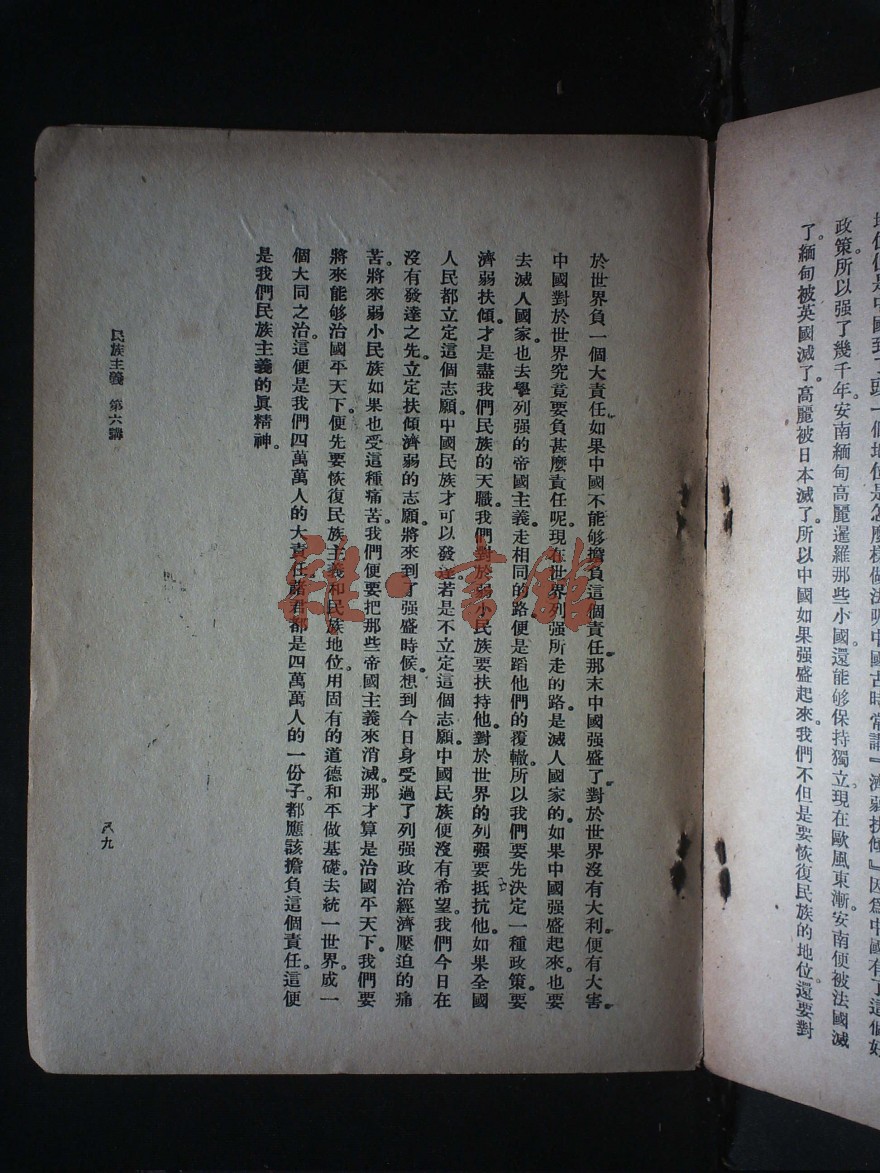 地位但是中國到了頭一個地位是怎麼樣做法呢中國古時常講『濟弱扶傾』因爲中國有了這個好
政策所以强了幾千年安南緬甸高麗暹羅那些小國還能够保持獨立現在歐風東漸安南便被法國滅
了。緬甸被英國滅了。高麗被日本滅了。所以中國如果强盛起來。我們不但是要恢復民族的地位。還要對
於世界負一個大責任。如果中國不能够擔負這個責任。那末中國强盛了。對於世界沒有大利。便有大害。
中國對於世界究竟要負甚麼責任呢。現在世界列强所走的路。是滅人國家的。如果中國强盛起來。也要
去滅人國家。也去學列强的帝國主義。走相同的路。便是蹈他們的覆轍。所以我們要先決定一種政策。要
濟弱扶傾。才是盡我們民族的天職。我們對於弱小民族要扶持他。對於世界的列强要抵抗他。如果全國
人民都立定這個志願。中國民族才可以發達。若是不立定這個志願。中國民族便沒有希望。我們今日在
沒有發達之先。立定扶傾濟弱的志願。將來到了强盛時候。想到今日身受過了列强政治經濟壓迫的痛
苦。將來弱小民族如果也受這種痛苦。我們便要把那些帝國主義來消滅。那才算是治國平天下。我們要
將來能够治國平天下。便先要恢復民族主義和民族地位。用固有的道德和平做基礎。去統一世界。成一
個大同之治。這便是我們四萬萬人的大責任。諸君都是四萬萬人的一份子。都應該擔負這個責任。這便
是我們民族主義的眞精神。
民族主義 第六講
八九
雜·書館